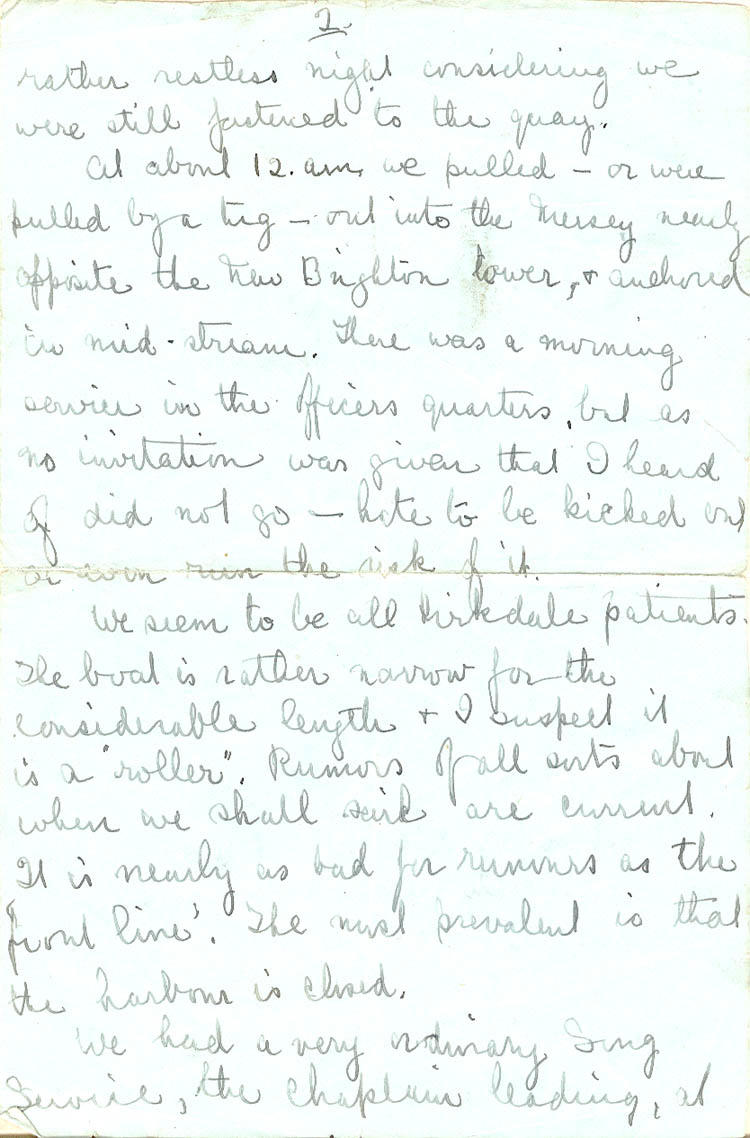 2.
rather restless night considering we
were still fastened to the quay.
At about 12.am. we pulled – or were
pulled by a tug – out into the Mersey nearly
opposite the New Brighton tower, & anchored
in mid-stream. There was a morning
service in the officers quarters, but as
no invitation was given that I heard
of did not go – hate to be kicked out
or even run the risk of it.
We seem to be all Kirkdale patients.
The boat is rather narrow for the
considerable length & I suspect it
is a "roller". Rumors of all sorts about
when we shall are current.
It is nearly as bad for rumours as the
front line'. The most prevalent is that
the harbour is closed.
We had a very ordinary Song
Service, the Chaplain leading, at